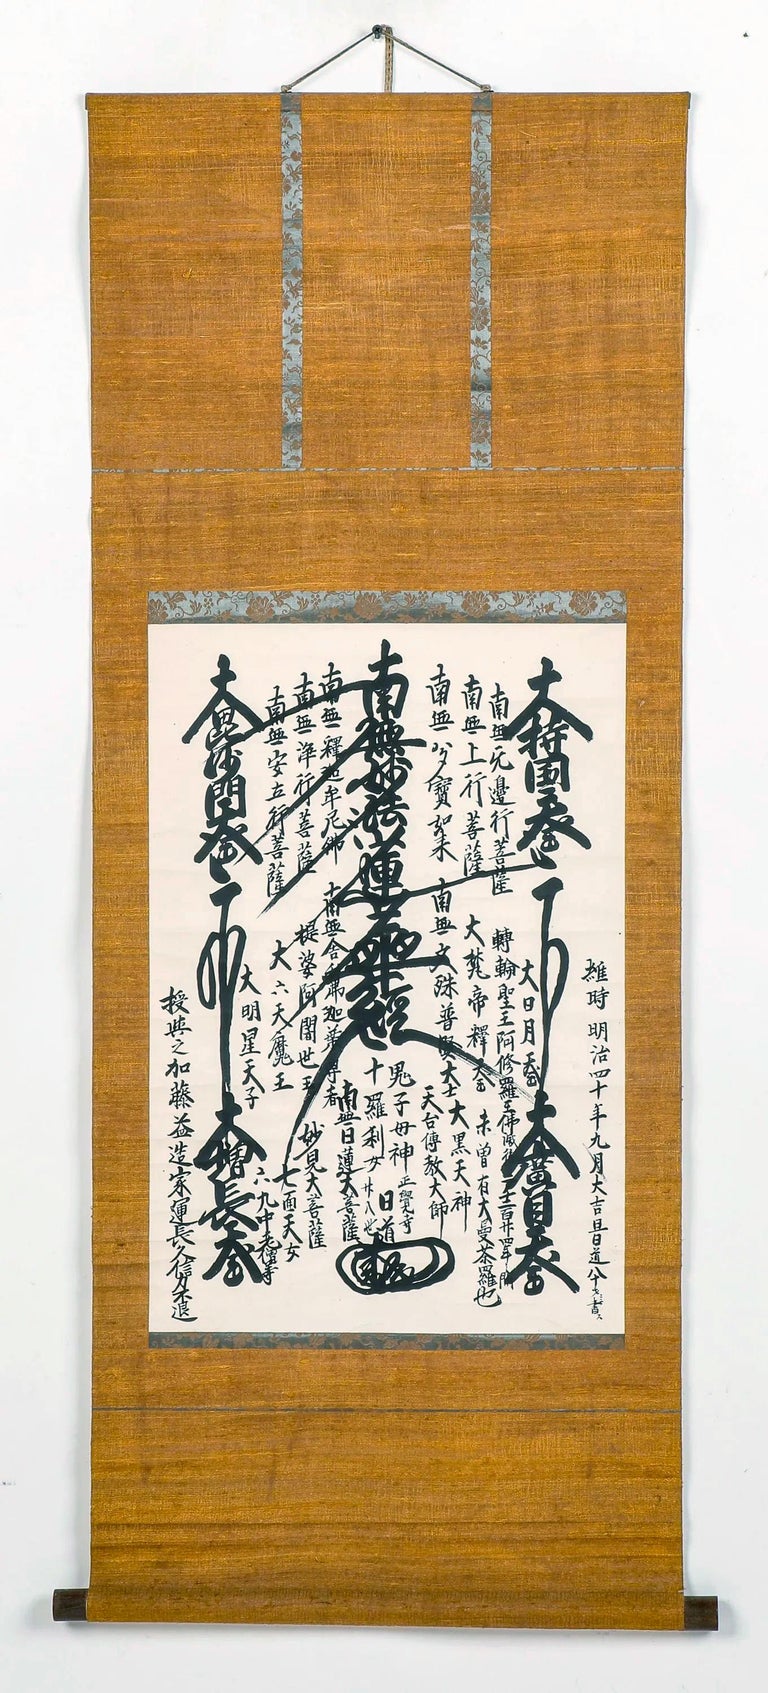 維時 明治四十年九月大吉旦日道八十
大持国天王
大廣目天王
大日月天王
轉輪聖王 阿修羅王 佛滅後
南無无邊行菩薩
南無上行菩薩
大梵帝釋天王
未曽有大曼荼羅也
南無多寶如来
南無文殊普賢大士
大黒天神
天台傳教大師
鬼子母神
正覺寺
南無妙法蓮華経
十羅刹女
廿八世
日道
南無釋迦牟尼佛
南無舎利弗迦葉尊者
南無日蓮大菩薩
南無浄行菩薩
提婆 阿闍世王
妙見大菩薩
南無安立行菩薩
大六天魔王
七面天女
大明星天子
六九中老僧等
大毘沙門天王
大増長天王
授與之加藤益造家運長久信力不退